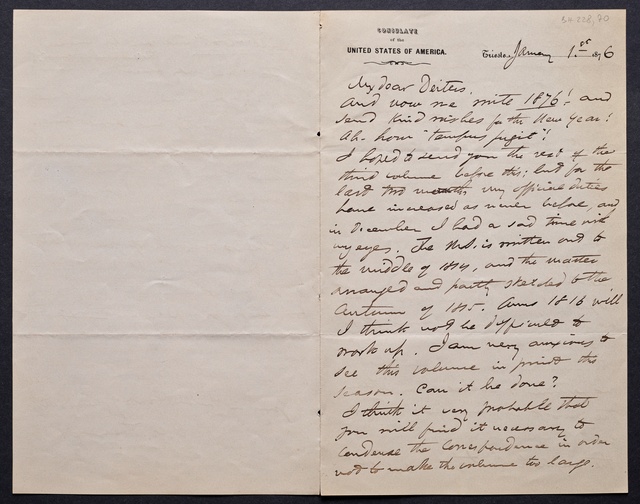 30.228,70
CONSULATE
of the
UNITED STATES OF AMERICA.
Trieste, January 1st 1876
My dear Deiters.
And now we write 1876! and
send kind wishes for the New Year!
Ah. how "tempus fugit"!
I hoped to send you the rest of the
third volume before this: but for the
last two months my official duties
have increased as never before, and
in December I had a sad time with
my eyes. The Ms. is written out to
the middle of 1814, and the matter
arranged and partly sketched to the
Autumn of 1815. Anno 1816 will
I think not be difficult to
work up. I am very anxious to
see this volume in print this
season. Can it be done?
I think it very probable that
you will find it necessary to
condense the correspondence in order
not to make the volume too large.